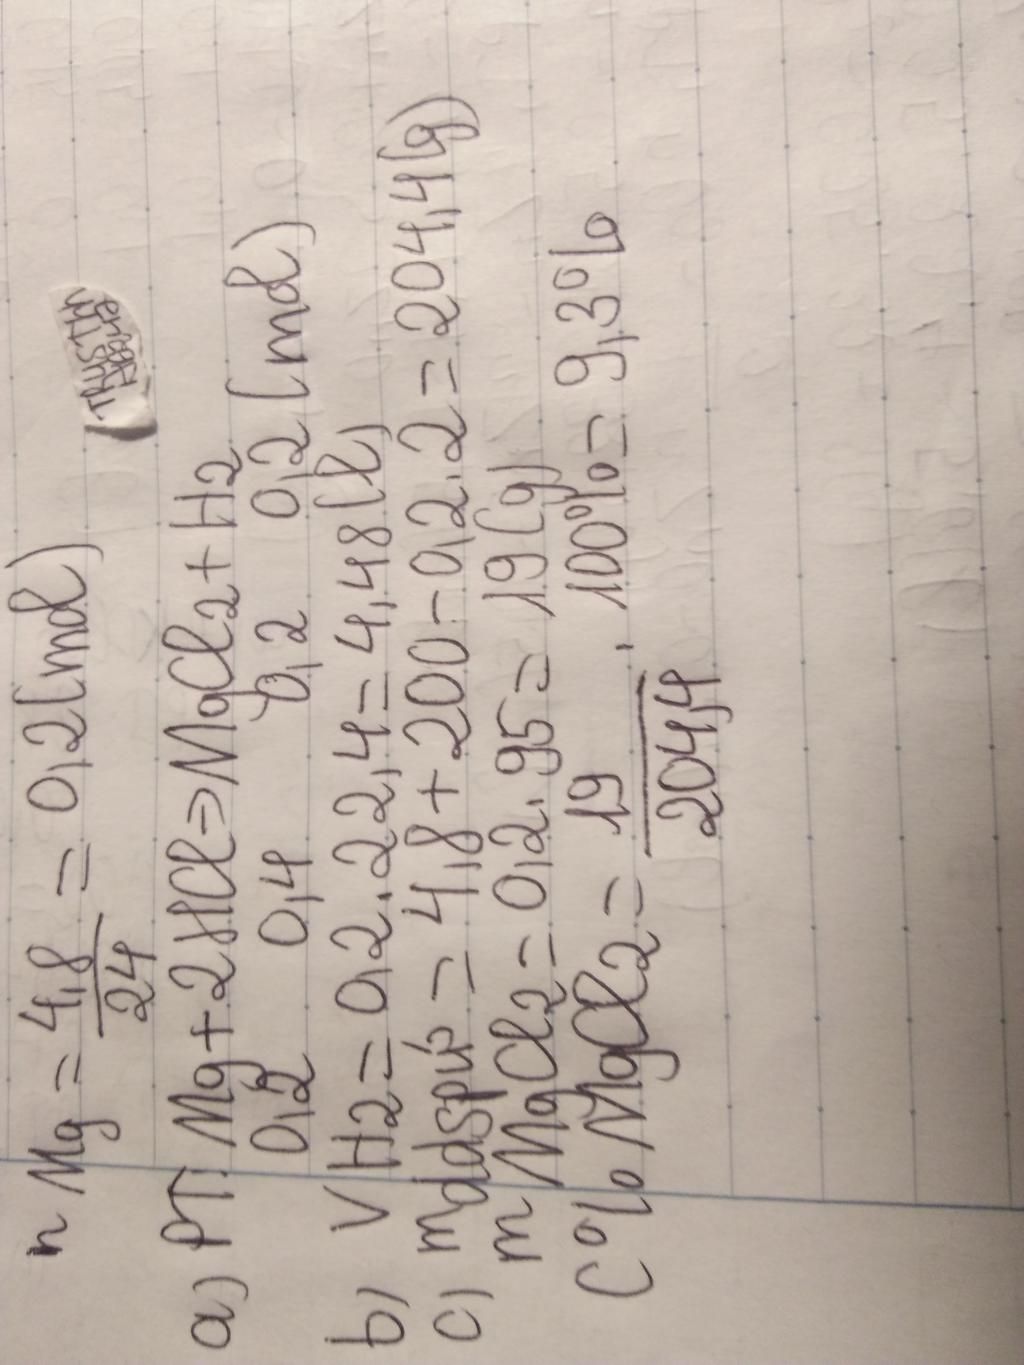 n Mg = 4,8/24 = 0,2 (mol)
a) PT: Mg + 2HCl => MgCl2 + H2
0,2 0,4 0,2 0,2 (mol)
b) V H2 = 0,2.22,4 = 4,48 (l)
c) mddspứ = 4,8 + 200 - 0,2.2 = 204,4 (g)
m MgCl2 = 0,2.95 = 19 (g)
C% MgCl2 = 19/204,4 . 100% = 9,3%